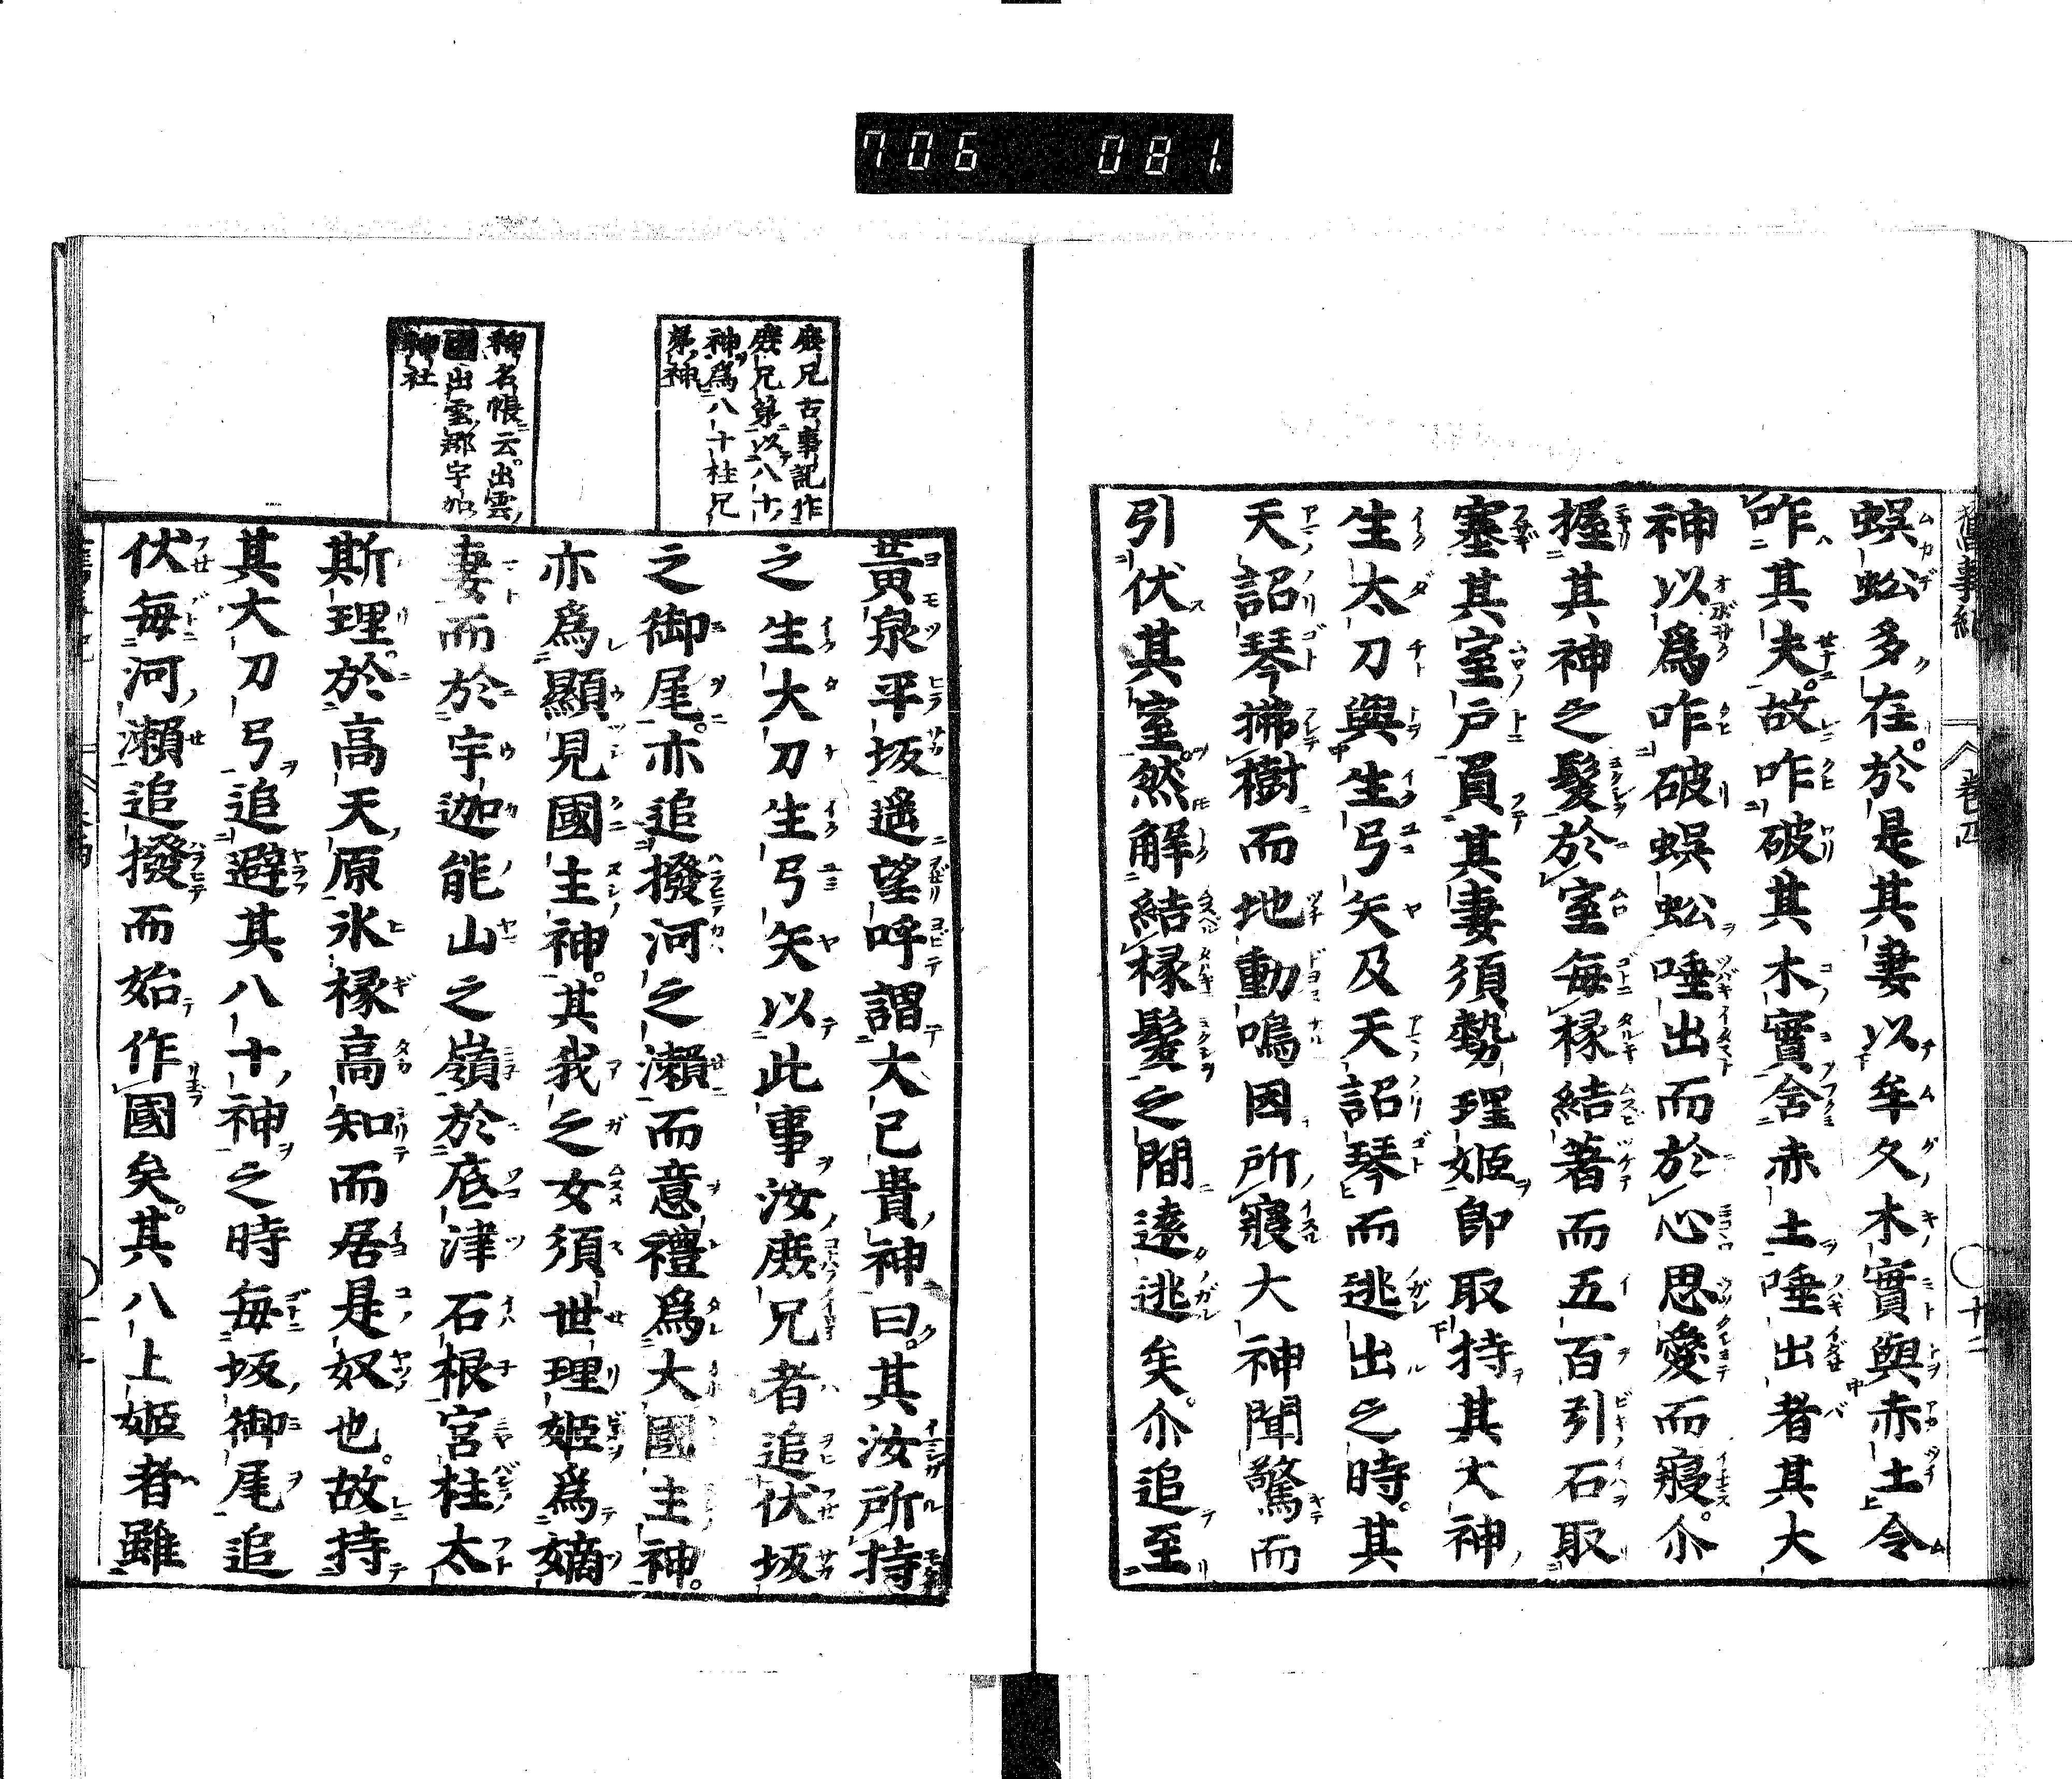 706 081
蜈蚣多在。於是其妻以牟久木實與赤土令
咋其夫。故咋破其木實含赤土唾出者其大
神以爲咋破蜈蚣唾出而於心思愛而寢。尒
握其神之髮於室每椽結著而五百引石取
塞其室戶負其妻須勢理姬卽取持其大神
生太刀與生弓矢及天詔琴而逃出之時。其
天詔琴拂樹而地動鳴因所寢大神聞驚而
引伏其室。然解結椽髮之間遠逃矣。尒追至
黃泉平坂遥望呼謂大己貴神曰。其汝所持
之生大刀生弓矢以此事汝庶兄者追伏坂
之御尾。亦追撥河之瀨而意禮爲大國主神。
亦爲顯見國主神。其我之女須世理姬爲嫡
妻而於宇迦能山之嶺於底津石根宮柱太
斯理。於高天原氷椽高知而居是奴也。故持
其大刀弓追避其八十神之時每坂御尾追
伏每河瀨追撥而始作國矣。其八上姬者雖
庶兄古事記作
庶兄弟以八十
神爲八十柱兄
弟神
神名帳云。出雲
國出雲郡宇加
神社
卷四
十二